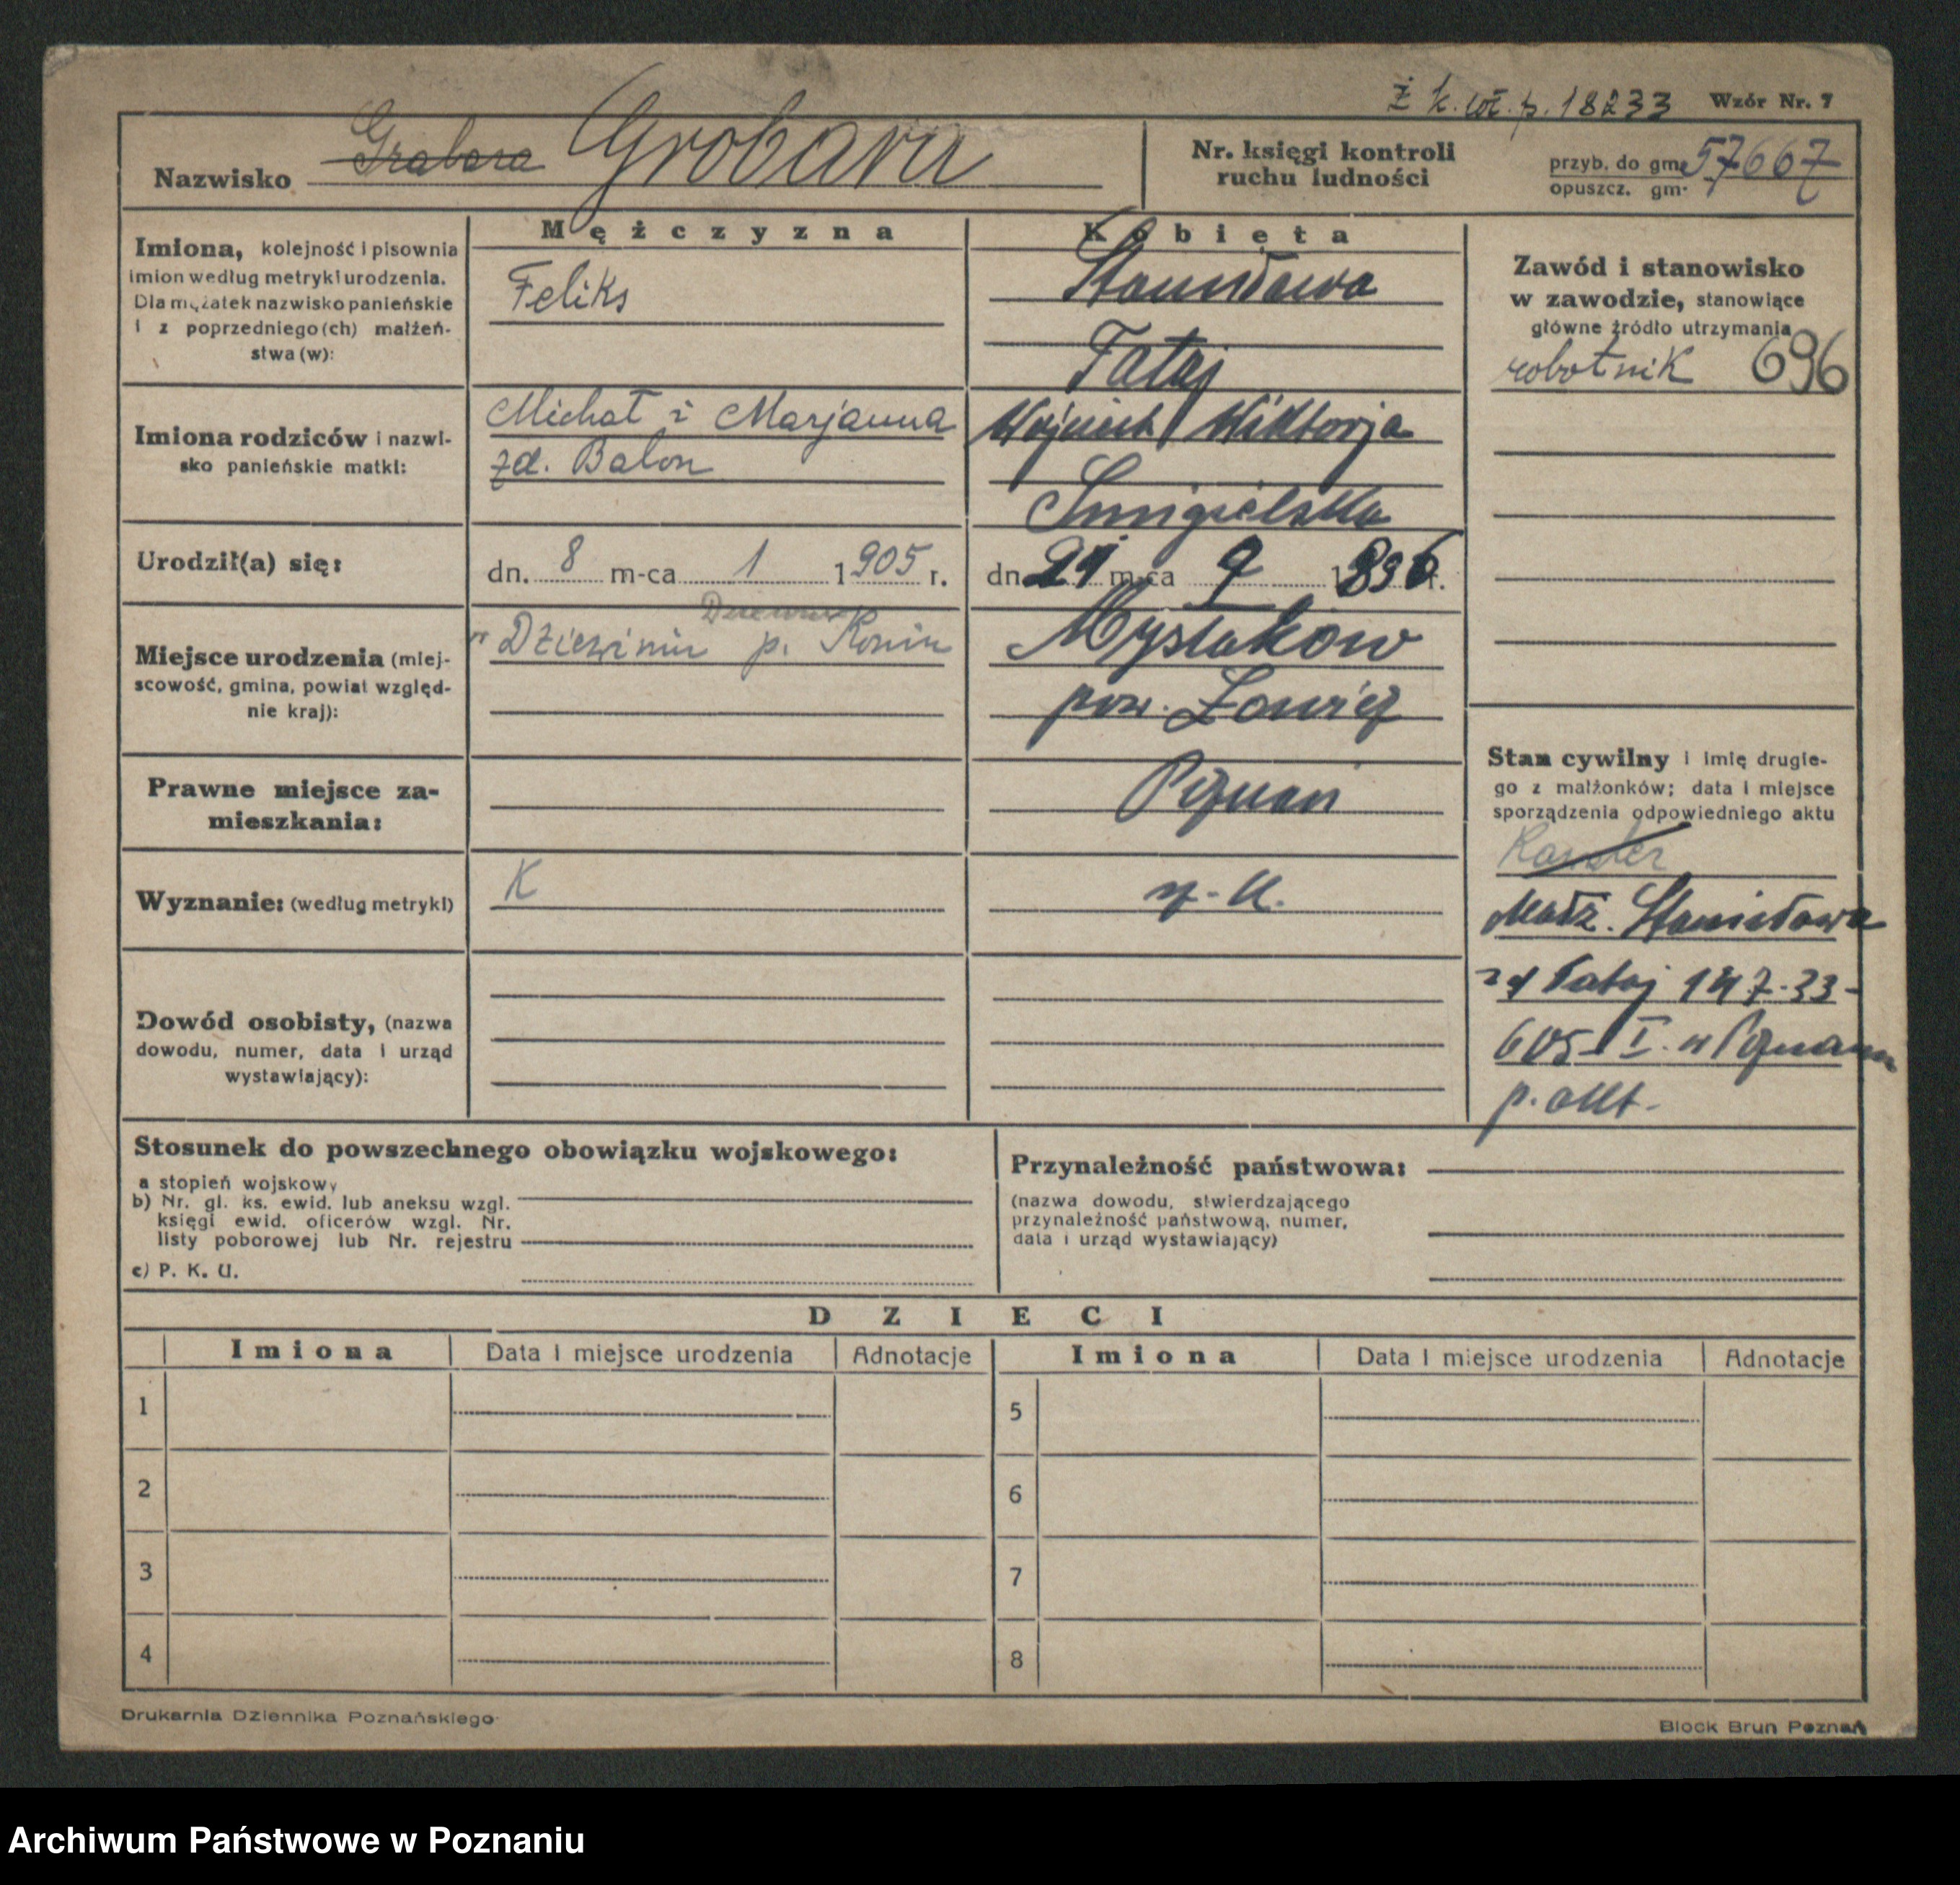 Ż k. wł. p. 18233 Wzór Nr. 7
Nazwisko Grabara Grobara
Nr. księgi kontroli ruchu ludności
przyb. do gm. 57667
opuszcz. gm.
Mężczyzna Kobieta
Imiona, kolejność i pisownia
imion według metryki urodzenia.
Dla mężatek nazwisko panieńskie
i z poprzedniego(ch) małżeń-
stwa(w):
Feliks
Stanisława
Tataj
Zawód i stanowisko
w zawodzie, stanowiące
główne źródło utrzymania
robotnik 696
Imiona rodziców i nazwi-
sko panieńskie matki:
Michał i Marjanna
zd. Balon
Wojciech Wiktorja
Smigielska
Urodził(a) się:
dn. 8 m-ca 1 1905 r.
dn. m-ca 1896 r.
Miejsce urodzenia (miej-
scowość, gmina, powiat względ-
nie kraj):
p. Konin
Mysłaków
pow. Łowicz
Prawne miejsce za-
mieszkania:
Poznań
Stan cywilny i imię drugie-
go z małżonków; data i miejsce
sporządzenia odpowiedniego aktu
Kawaler
Małż. Stanisława
zd Tataj 7.33-
605 I. w Poznaniu
p. akt.
Wyznanie: (według metryki)
K
rz.-k.
Dowód osobisty, (nazwa
dowodu, numer, data i urząd
wystawiający):
Stosunek do powszechnego obowiązku wojskowego:
a stopień wojskowy
b) Nr. gl. ks. ewid. lub aneksu wzgl.
księgi ewid. oficerów wzgl. Nr.
listy poborowej lub Nr. rejestru
c) P. K. U.
Przynależność państwowa:
(nazwa dowodu, stwierdzającego
przynależność państwową, numer,
data i urząd wystawiający)
DZIECI
Imiona Data i miejsce urodzenia Adnotacje Imiona Data i miejsce urodzenia Adnotacje
1 5
2 6
3 7
4 8
Drukarnia Dziennika Poznańskiego
Block Brun Poznań
Archiwum Państwowe w Poznaniu